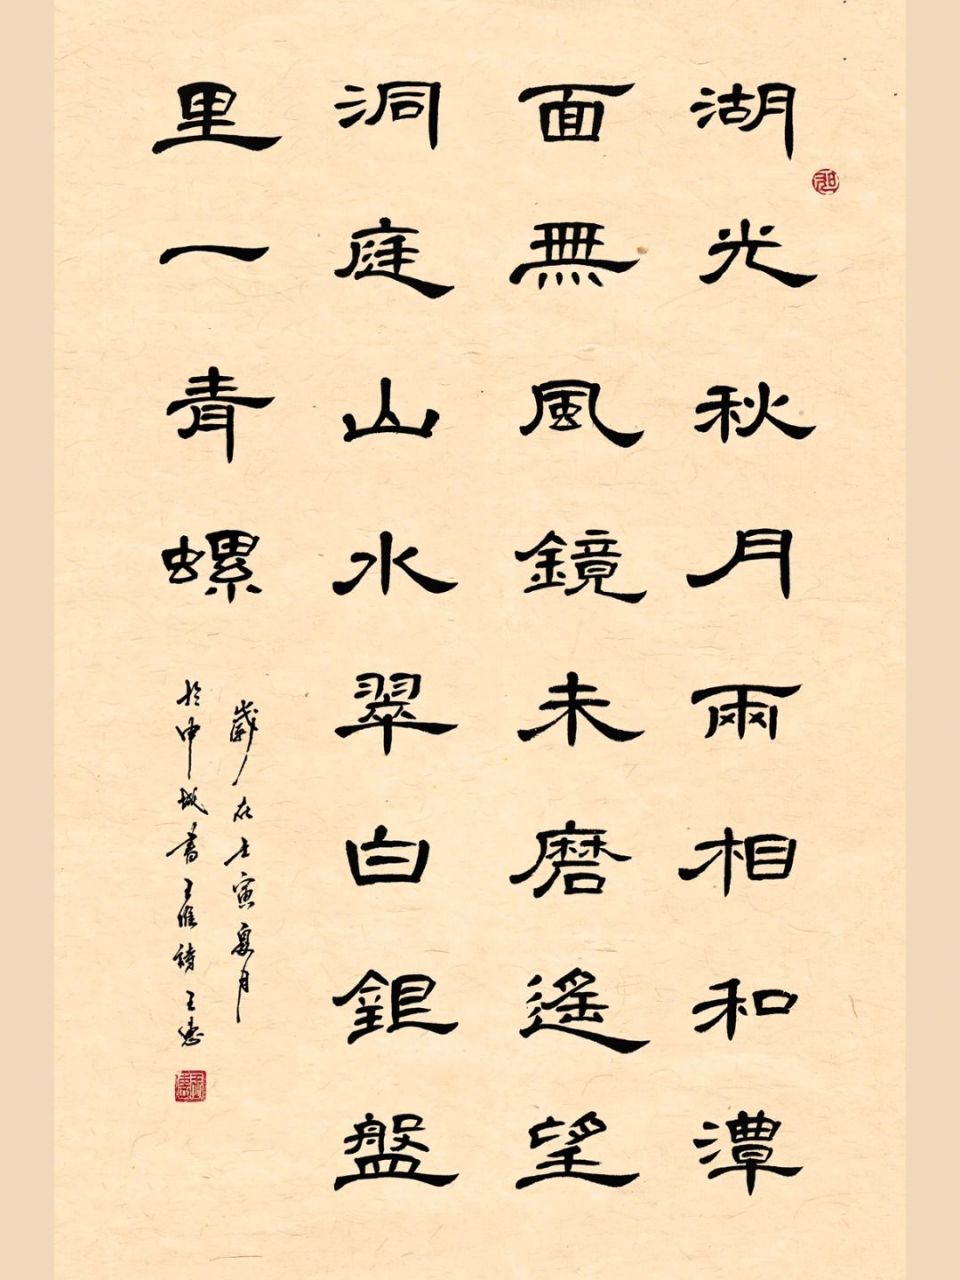 湖光秋月兩相和潭
面無風鏡未磨遙望
洞庭山水翠白銀盤
里一青螺
歲在壬寅夏月
於申城書王維詩王